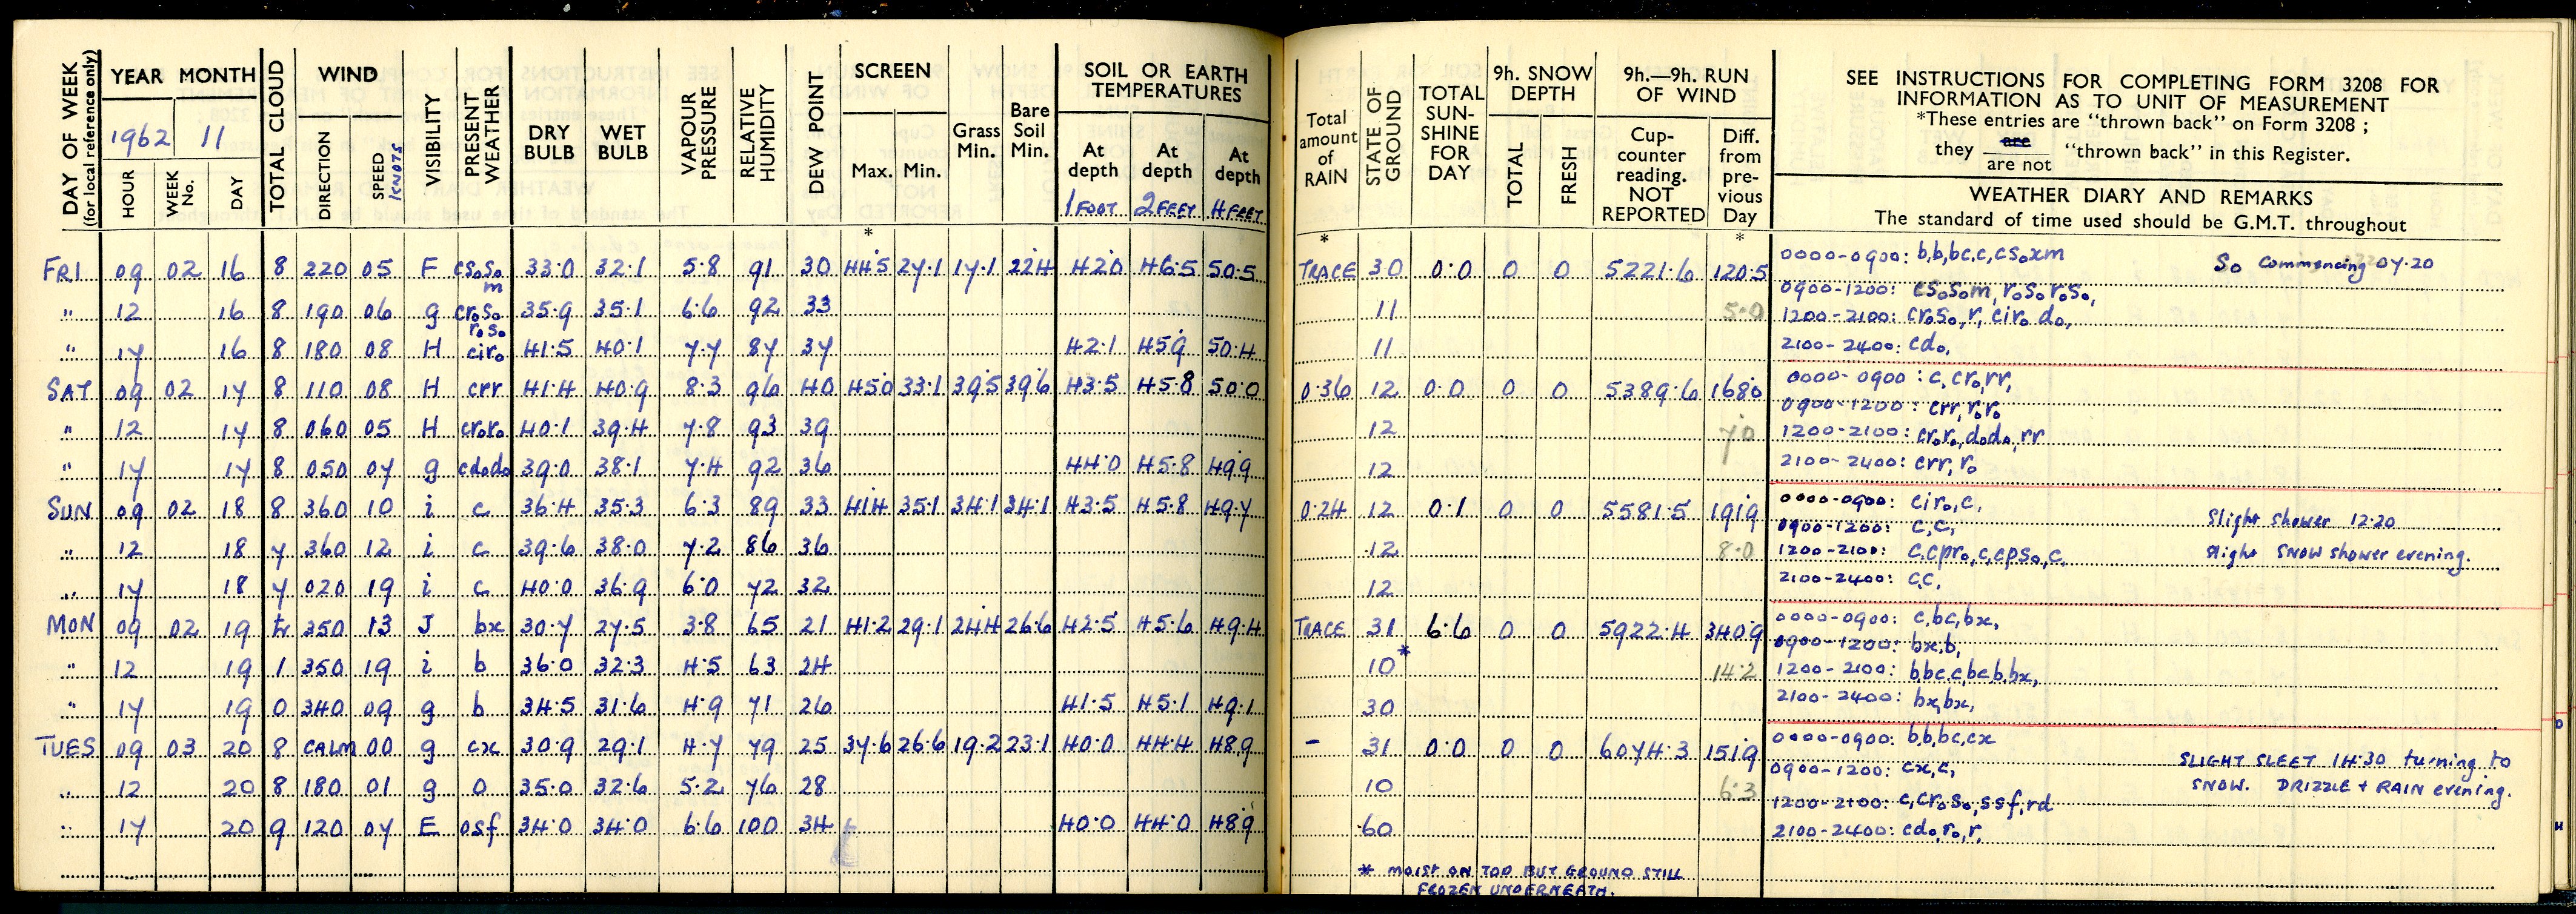 DAY OF WEEK (for local reference only)
YEAR MONTH
1962 11
HOUR WEEK No. DAY
TOTAL CLOUD
WIND
DIRECTION SPEED KNOTS
VISIBILITY
PRESENT WEATHER
DRY BULB WET BULB
VAPOUR PRESSURE
RELATIVE HUMIDITY
DEW POINT
SCREEN
Max. Min.
Grass Min.
Bare Soil Min.
SOIL OR EARTH TEMPERATURES
At depth At depth At depth
1 FOOT 2 FEET 4 FEET
Total amount of RAIN
STATE OF GROUND
TOTAL SUN-SHINE FOR DAY
9h. SNOW DEPTH
TOTAL FRESH
9h.—9h. RUN OF WIND
Cup-counter reading. NOT REPORTED
Diff. from pre-vious Day
SEE INSTRUCTIONS FOR COMPLETING FORM 3208 FOR
INFORMATION AS TO UNIT OF MEASUREMENT
*These entries are "thrown back" on Form 3208 ;
they are / are not "thrown back" in this Register.
WEATHER DIARY AND REMARKS
The standard of time used should be G.M.T. throughout
* * *
FRI 09 02 16 8 220 05 F csoso m 33.0 32.1 5.8 91 30 44.5 27.1 17.1 22.4 42.0 46.5 50.5 TRACE 30 0.0 0 0 5221.6 120.5
0000-0900: b,b,bc,c,csoxm So commencing 07.20
" 12 16 8 190 06 g croso roso 35.9 35.1 6.6 92 33 11 5.0
0900-1200: csosom, rosoroso,
1200-2100: croso, r, ciro do,
" 17 16 8 180 08 H ciro 41.5 40.1 7.7 87 37 42.1 45.9 50.4 11
2100-2400: cdo,
SAT 09 02 17 8 110 08 H crr 41.4 40.9 8.3 96 40 45.0 33.1 39.5 39.6 43.5 45.8 50.0 0.36 12 0.0 0 0 5389.6 168.0
0000-0900: c, cro, rr,
0900-1200: crr, roro
" 12 17 8 060 05 H croro 40.1 39.4 7.8 93 39 12 7.0
1200-2100: croro, dodo, rr
" 17 17 8 050 07 g cdodo 39.0 38.1 7.4 92 36 44.0 45.8 49.9 12
2100-2400: crr, ro
SUN 09 02 18 8 360 10 i c 36.4 35.3 6.3 89 33 41.4 35.1 34.1 34.1 43.5 45.8 49.7 0.24 12 0.1 0 0 5581.5 191.9
0000-0900: ciro, c,
0900-1200: c,c, Slight shower 12.20
" 12 18 7 360 12 i c 39.6 38.0 7.2 86 36 12 8.0
1200-2100: c,cpro,c,cpso,c, Slight SNOW shower evening.
" 17 18 7 020 19 i c 40.0 36.9 6.0 72 32 12
2100-2400: c,c,
MON 09 02 19 tr 350 13 J bx 30.7 27.5 3.8 65 21 41.2 29.1 24.4 26.6 42.5 45.6 49.4 TRACE 31 6.6 0 0 5922.4 340.9
0000-0900: c,bc,bx,
0900-1200: bx,b,
" 12 19 1 350 19 i b 36.0 32.3 4.5 63 24 10* 14.2
1200-2100: b,bc,c,bc,b,bx,
" 17 19 0 340 09 g b 34.5 31.6 4.9 71 26 41.5 45.1 49.1 30
2100-2400: bx,bx,
TUES 09 03 20 8 CALM 00 g cx 30.9 29.1 4.7 79 25 37.6 26.6 19.2 23.1 40.0 44.4 48.9 - 31 0.0 0 0 6074.3 151.9
0000-0900: b,b,bc,cx
0900-1200: cx,c, SLIGHT SLEET 14.30 turning to
" 12 20 8 180 01 g o 35.0 32.6 5.2 76 28 10 6.3
SNOW. DRIZZLE + RAIN evening.
1200-2100: c,croso,ssf,rd
" 17 20 9 120 07 E osf 34.0 34.0 6.6 100 34 40.0 44.0 48.9 60
2100-2400: cdo,ro,r,
* MOIST ON TOP BUT GROUND STILL
FROZEN UNDERNEATH.